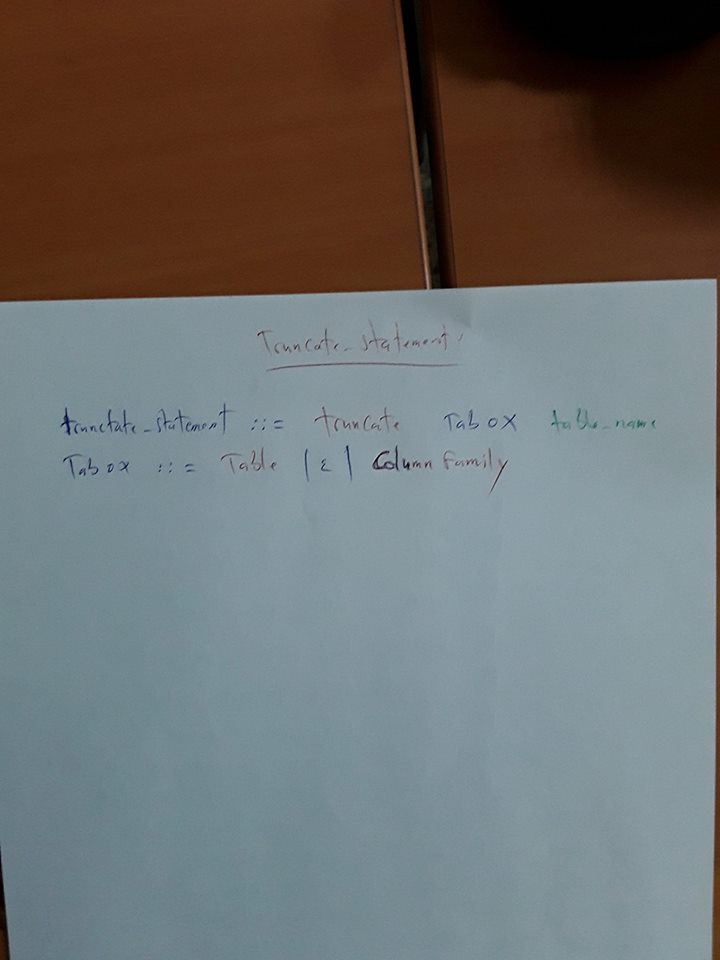 Truncate_statement:
trunctate_statement ::= truncate Tabox table_name
Tabox ::= Table | ε | Column Family